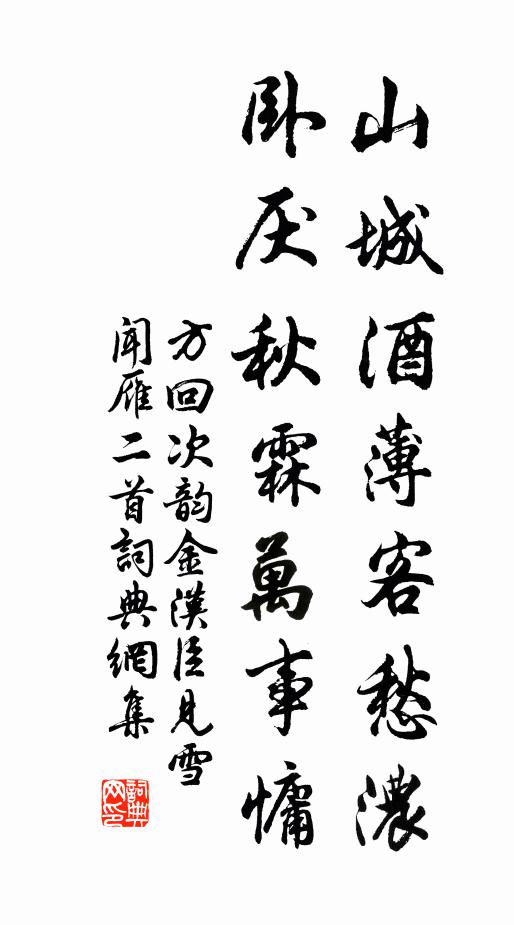 山城酒薄客愁濃
卧厌秋霖萬事慵
方回次韵金漢臣見雪
聞雁二首詞典網集
詞典
网印